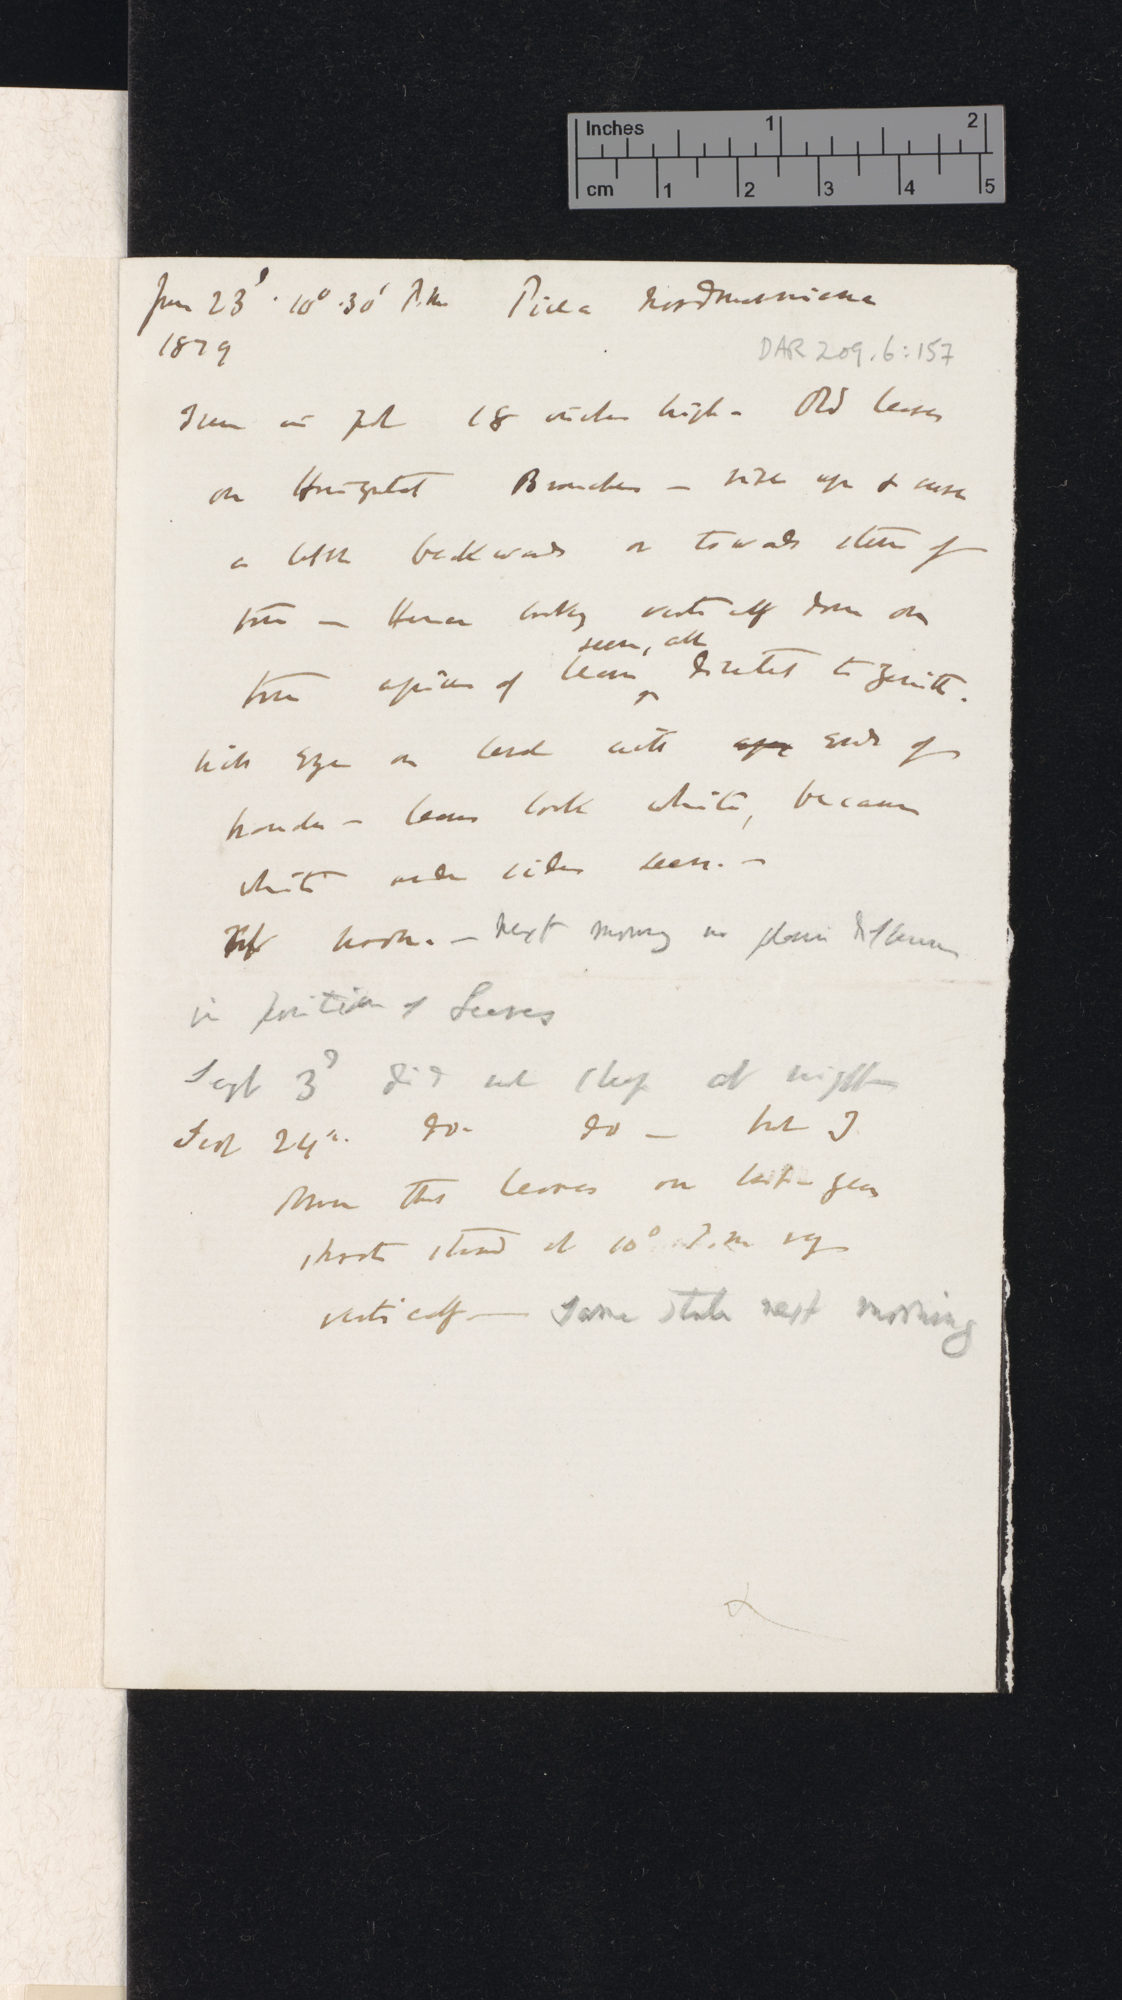 Inches 1 2
cm 1 2 3 4 5
June 23d. 10° 30' P.m Picea Nordmanniana
1879
DAR 209.6:157
Tree in pot 18 inches high – Old leaves
on Horizontal Branches – rise up & curve
a little backwards or towards stem of
tree – Hence looking vertically down on
seen, all
tree apices of leaves directed to Zenith.
with eye on level with ends of
branches – leaves look white, because
white under sides seen. –
– next morning no plain difference
in position of Leaves
Sept 3d did not sleep at night
Sept 24th. do – do – but I
think this leaves on last year
shoots stand at 10° P.m up
vertically – Same state next morning